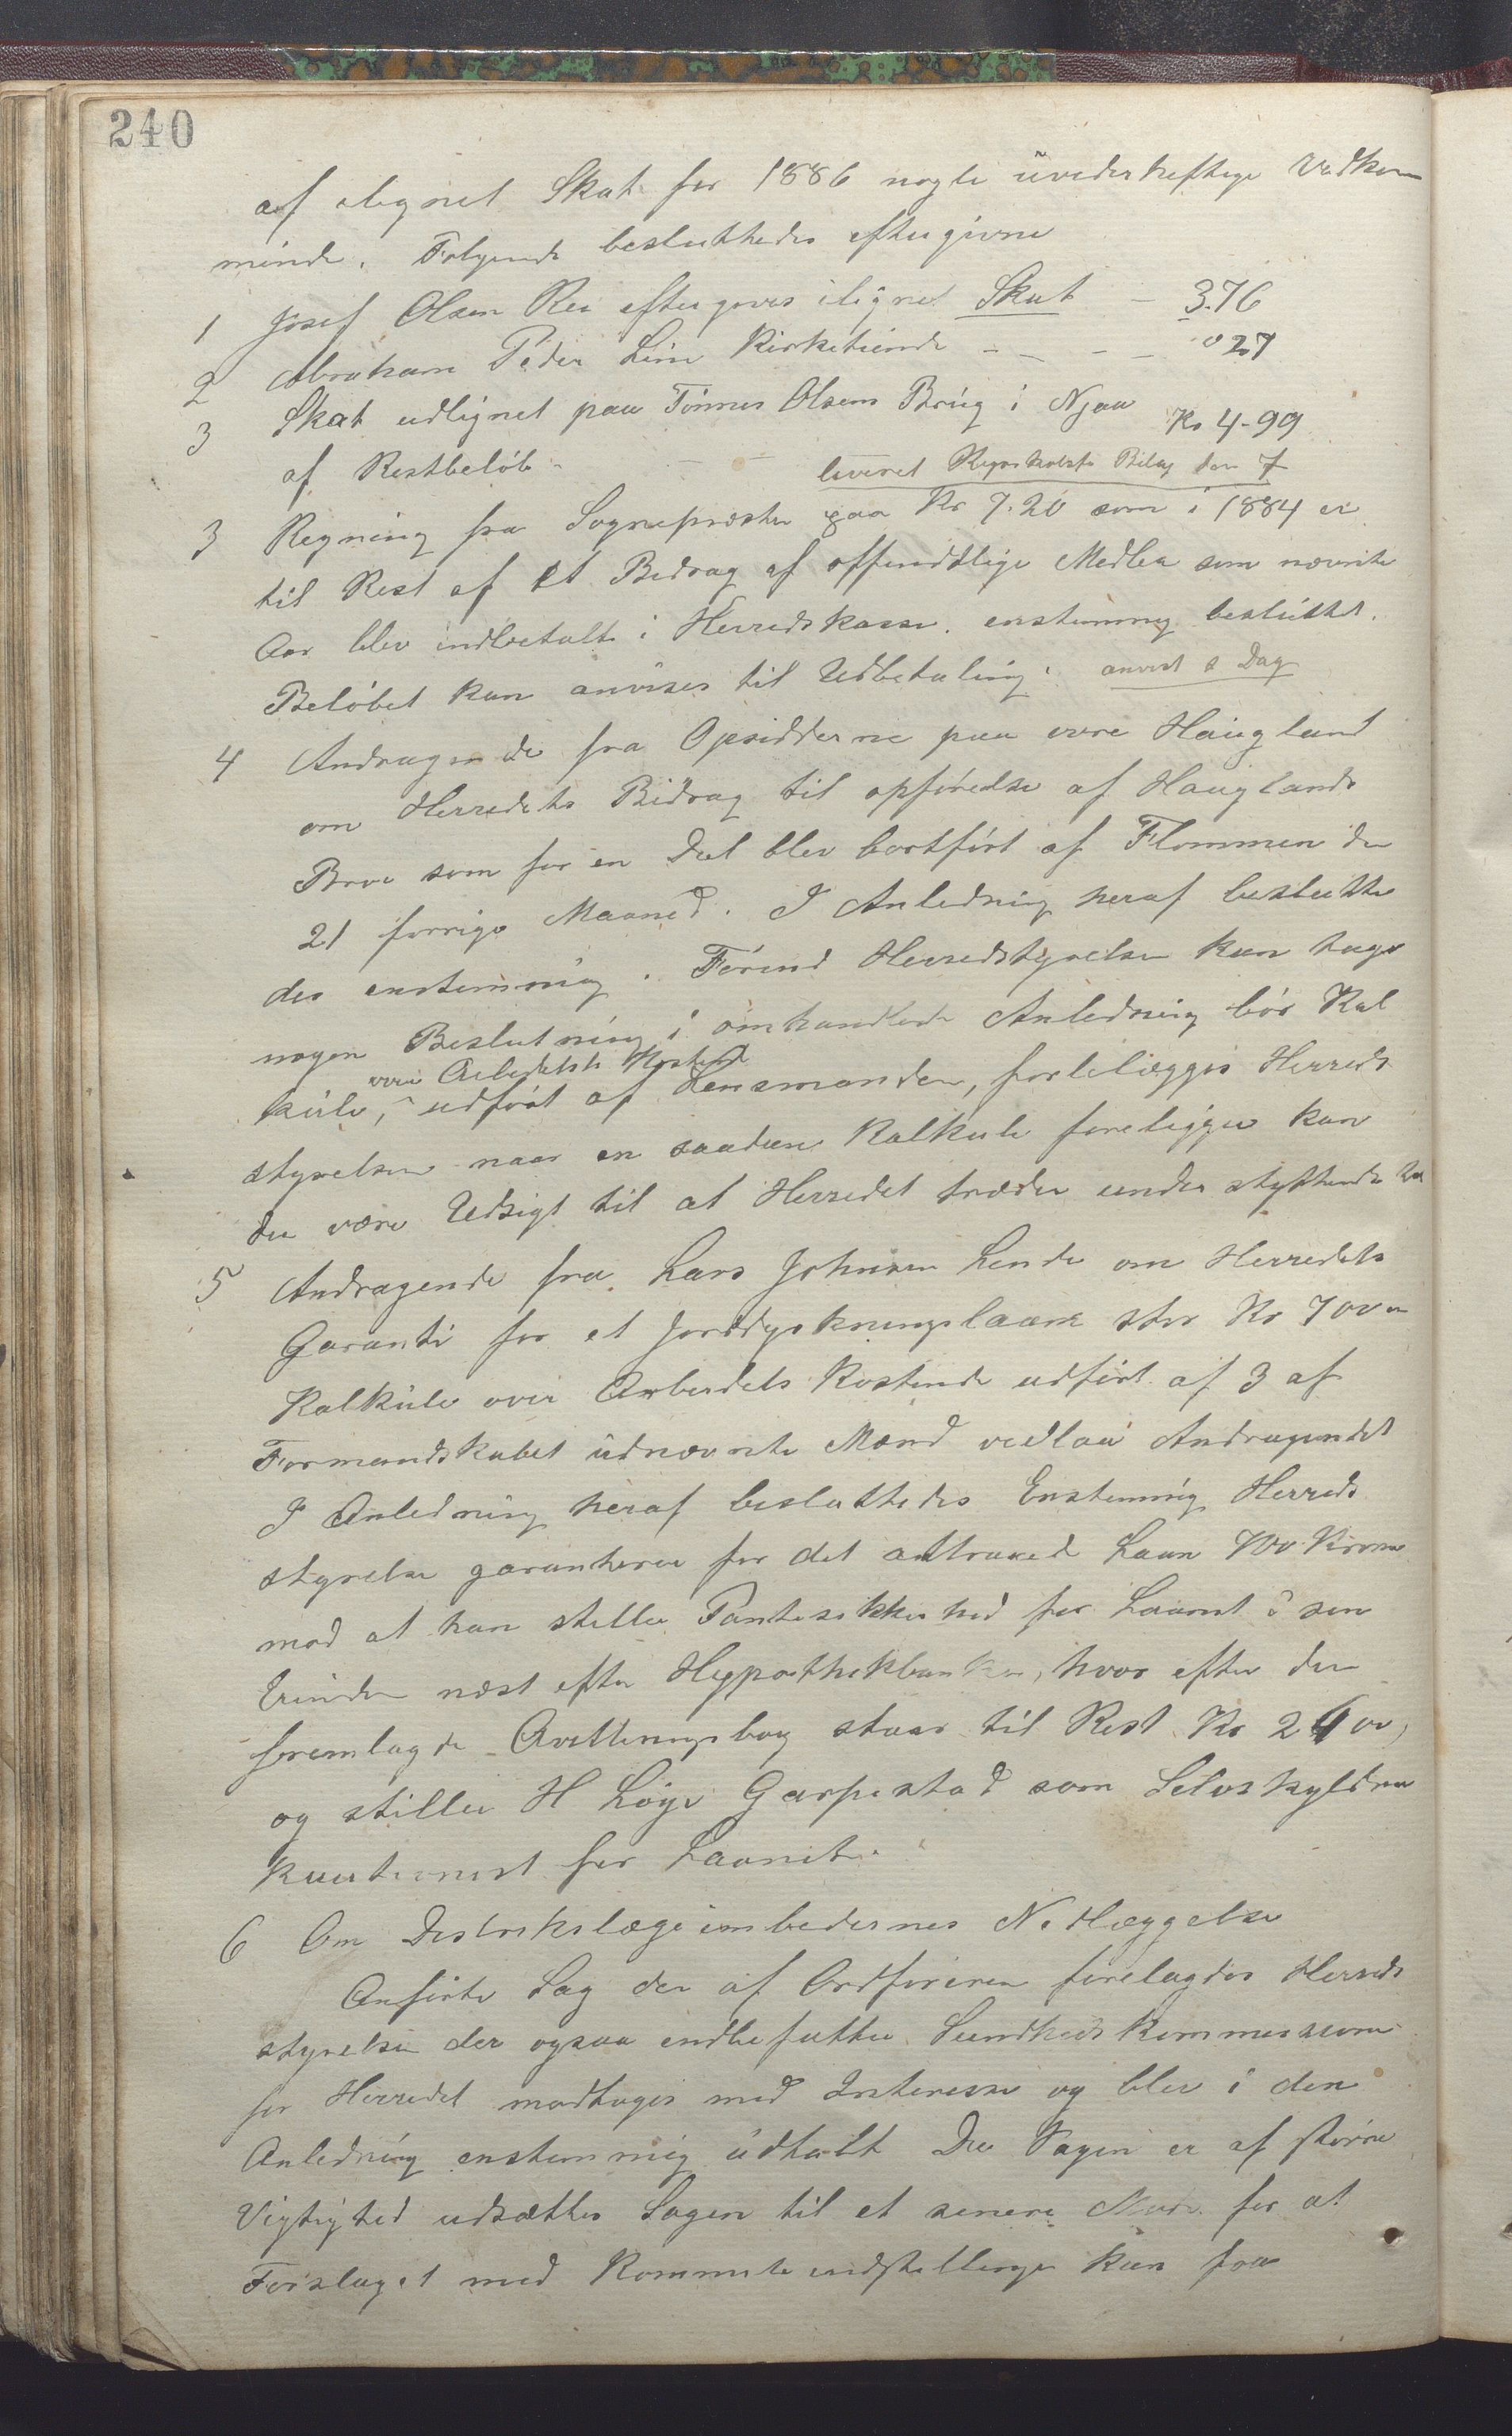 240
af ilignet Skat for 1886 nogle uvederheftige Vedkom
mende. Følgende besluttedes eftergivne
1 Josef Olsen Re eftergives ilignet Skat - 3.76
2 Abraham Peder Lime Kirketiende - - - - 0 27
3 Skat udlignet paa Tønnes Olsens Brug i Njaa
af Restbeløb - - - Kr 4-99
leveret Regnskabets Bilag den 7
3 Regning fra Sognepræsten paa Kr 7.20 som i 1884 er
til Rest af et Bidrag af offendtlige Medler som nævnte
Aar blev indbetalt i Herredskassen. enstemmig besluttet.
Beløbet kan anvises til Udbetaling. anvist s Dag
4 Andragende fra Opsidderne paa øvre Haugland
om Herredets Bidrag til opførelse af Hauglands
Broe som for en Del blev bortført af Flommen den
21 forrige Maaned. I Anledning heraf beslutte
des enstemmig. Førend Herredstyrelsen kan tage
nogen Beslutning i omhandlede Anledning bør Kal
over Arbeidets Kostende
kule, udført af Lensmanden, forelægges Herreds
styrelsen naar en saadan Kalkule foreligger kan
der være Udsigt til at Herredet træder understøttende til
5 Andragende fra Lars Johnsen Lende om Herredets
Garanti for et Jorddyrkningslaan stor Kr 700
Kalkule over Arbeidets Kostende udført af 3 af
Formandskabet udnævnte Mænd vedlaa Andragendet
I Anledning heraf besluttedes Enstemmig Herreds
styrelse garanterer for det attraaede Laan 700 Kroner
mod at han stiller Pantesikkerhed for Laanet i sin
Eiendom næst efter Hypothekbanken, hvor efter den
fremlagde Qvitteringsbog staar til Rest Kr 2600,
og stiller H Løge Garpestad som Selvskyldner
Kautionist for Laanet.
6 Om Distriktslægeembedernes Nedlæggelse
Anførte Sag der af Ordføreren forelagdes Herreds
styrelsen der ogsaa indbefatter Sundhedskommissionen
for Herredet modtoges med Interesse og blev i den
Anledning enstemmig udtalt Da Sagen er af større
Vigtighed udsættes Sagen til et senere Møde for at
Forslaget med Komiteindstillinger kan fra